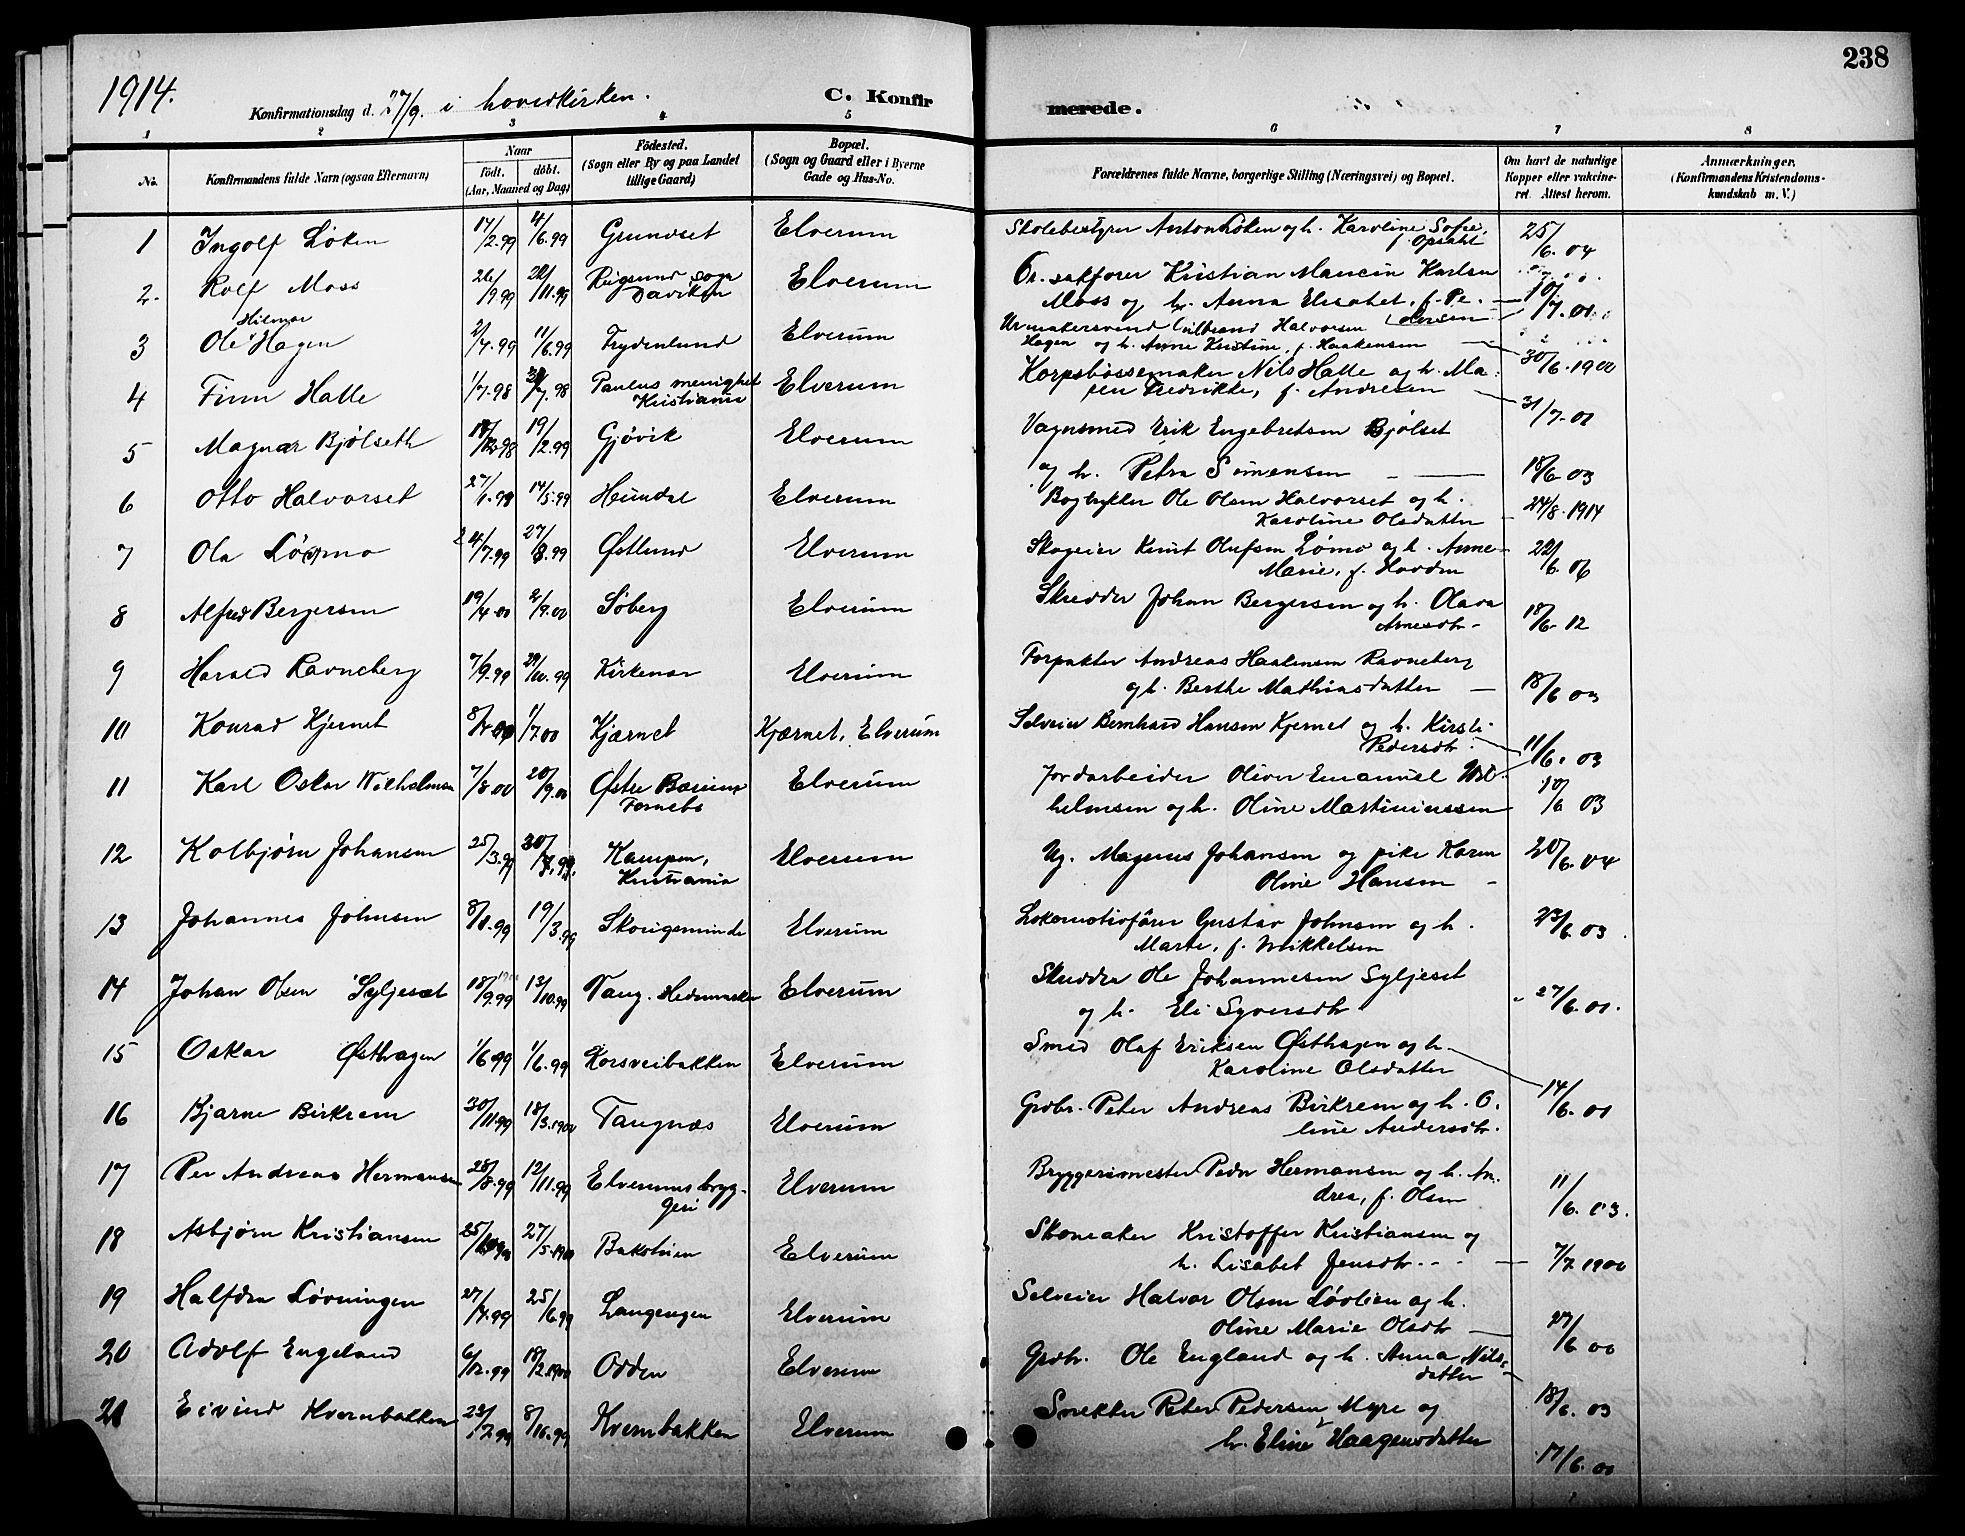 238
1914.
Konfirmationsdag d. 27/9. i hovedkirken.
C. Konfirmerede.
1 2 3 4 5 6 7 8
No.
Konfirmandens fulde Navn (ogsaa Efternavn)
Naar
födt. döbt.
(Aar, Maaned og Dag)
Födested.
(Sogn eller By og paa Landet tillige Gaard)
Bopæl.
(Sogn og Gaard eller i Byerne Gade og Hus-No.
Forældrenes fulde Navne, borgerlige Stilling (Næringsvei) og Bopæl.
Om havt de naturlige Kopper eller vakcineret. Attest herom.
Anmærkninger.
(Konfirmandens Kristendomskundskab m. V.)
1 Ingolf Løken 17/2.99 4/6.99 Grundset Elverum Skolebestyrer Anton Løken og h. Karoline Sofie, f. Opsahl 25/6.04
2. Rolf Moss 26/9.99 22/11.99 Rugsund sogn Daviken Elverum Or. sakfører Kristian Mancin Karlsen Moss og h. Anna Elisabet, f. Pedersen 10/7.01
3 Ole Hilmar Hagen 2/4.99 11/6.99 Frydenlund Elverum Urmakersvend Gulbrand Halvorsen Hagen og h. Anne Kristine, f. Haakensen 30/6.1900
4 Finn Halle 1/7.98 31/7.98 Paulus menighet Kristiania Elverum Korpsbøssemaker Nils Halle og h. Maren Fredrikke, f. Andresen 31/7.01
5 Magnar Bjølseth 18/12.98 19/2.99 Gjøvik Elverum Vognsmed Erik Engebretsen Bjølset og h. Petra Simensen 18/6.03
6 Otto Halvorset 27/1.99 14/5.99 Heimdal Elverum Bogtrykker Ole Olsen Halvorset og h. Karoline Olsdatter 24/8.1914
7 Ola Lømo 24/7.99 27/8.99 Østlund Elverum Skogeier Knut Olufsen Lømo og h. Anne Marie, f. Hovden 22/6.06
8 Alfred Bergersen 19/4.00 2/9.00 Søberg Elverum Skredder Johan Bergersen og h. Olava Arnesdtr. 18/6.12
9 Harald Ravneberg 7/9.99 29/10.99 Kirkenær Elverum Forpakter Andreas Haakensen Ravneberg og h. Berthe Mathiasdatter 18/6 03
10 Konrad Kjernet 8/4.00 1/7.00 Kjærnet Kjærnet, Elverum Selveier Bernhard Hansen Kjernet og h. Kirsti Pedersdtr. 11/6.03
11 Karl Oskar Wilhelmsen 7/8.00 20/9.00 Østre Bærum Fornebo Elverum Jordarbeider Oliver Emanuel Wilhelmsen og h. Oline Martiniussen 10/6 03
12 Kolbjørn Johansen 25/3.99 30/7.99. Kampen, Kristiania Elverum Ug. Magnus Johansen og pike Karen Oline Hansen 20/6.04
13 Johannes Johnsen 8/1.99 19/3.99 Skovgeminde Elverum Lokomotivfører Gustav Johnsen og h. Marte, f. Mikkelsen 23/6.03.
14 Johan Olsen Syljeset 18/9.99 13/10.99 Vang. Hedemarken Elverum Skredder Ole Johannesen Syljeset og h. Eli Syversdtr 27/6.01.
15 Oskar Østhagen 1/6.99 1/6.99 Korsveibakken Elverum Smed Olaf Eriksen Østhagen og h. Karoline Olsdatter 14/6.01
16 Bjarne Birkrem 30/11.99 18/3.1900 Tangnæs Elverum Grdbr. Peter Andreas Birkrem og h. Oline Andersdtr.
17 Per Andreas Hermansen 28/8.99 12/11.99 Elverums bryggeri Elverum Bryggerimester Peder Hermansen og h. Andrea, f. Olsen 11/6.03.
18 Asbjørn Kristiansen 27/5.1900 Elverum Skomaker Kristoffer Kristiansen og h. Lisabet Jensdtr. 7/7 1900
19 Halfdan Løvningen 27/4.99 25/6.99 Langengen Elverum Selveier Halvor Olsen Løvlien og h. Oline Marie Olsdtr 27/6 00
20 Adolf Engeland 6/12.99 18/2.1900 Odden Elverum Grdbr. Ole England og h. Anna Nilsdatter 18/6.03
21 Eivind Kvernbakken 23/2.99 Kvernbakken Elverum Snekker Peter Pedersen Myre og h. Eline Haagensdatter 17/6.00